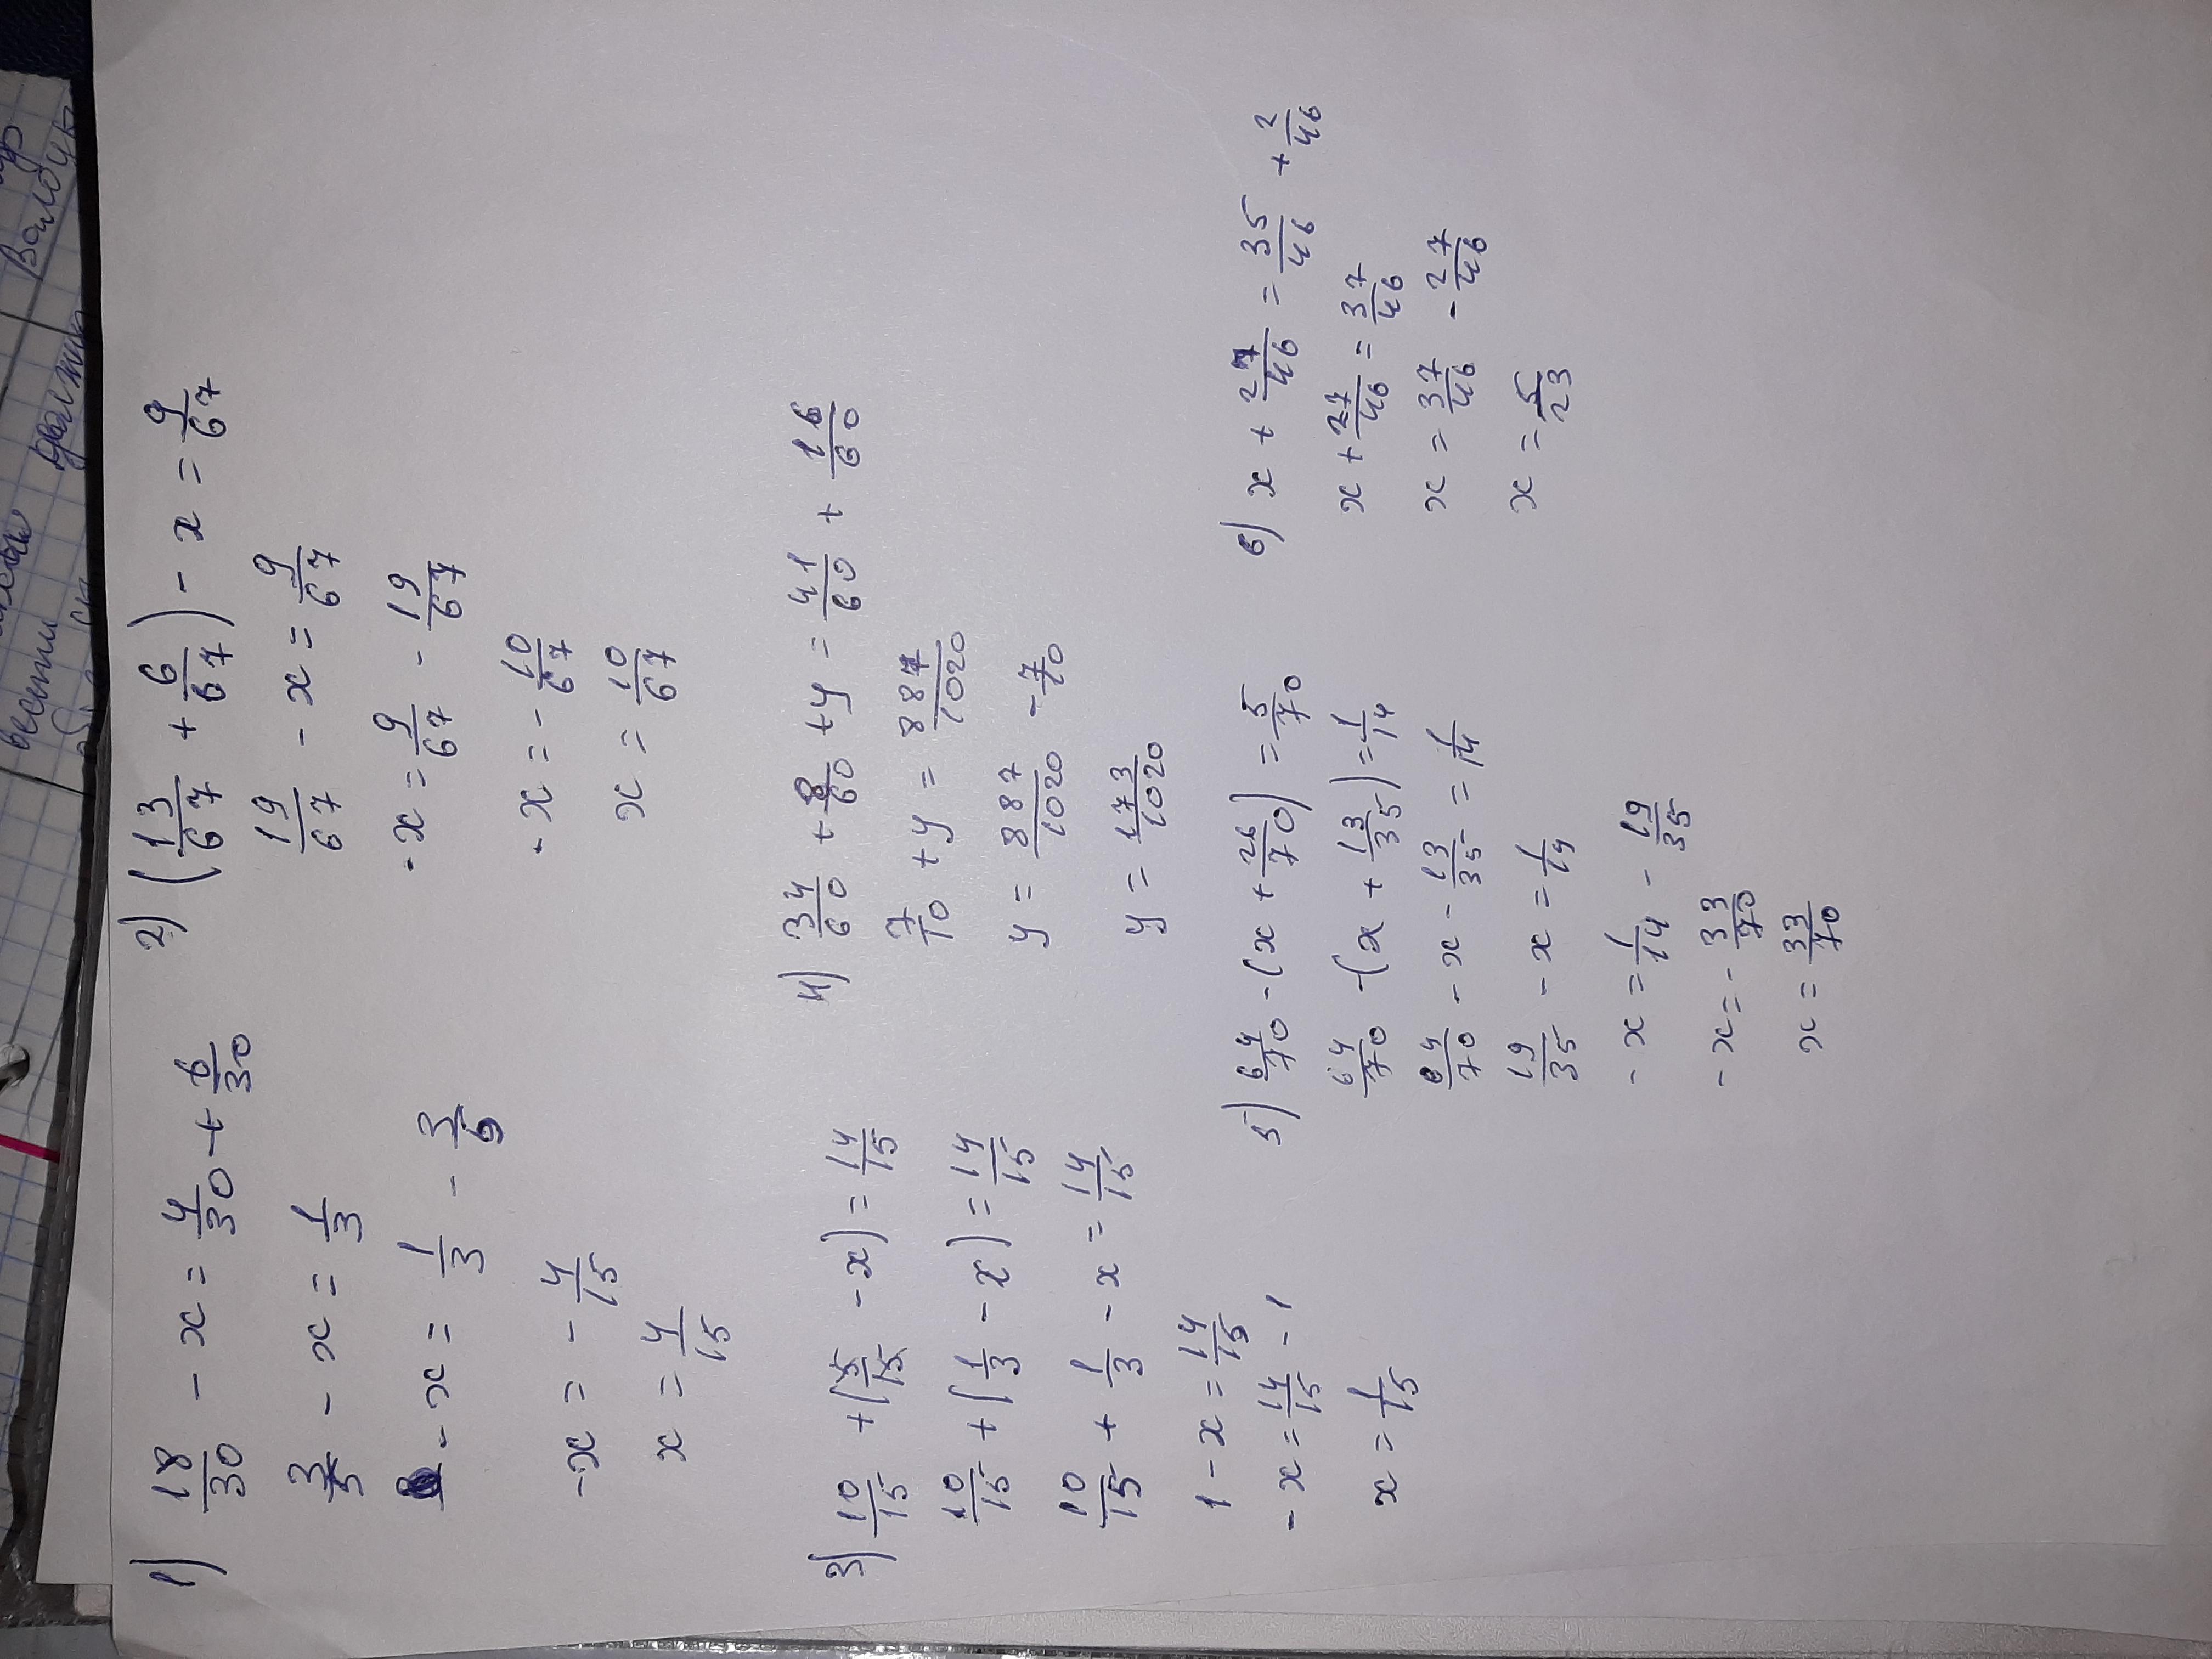 1) 18/30 - x = 4/30 + 6/30
3/5 - x = 1/3
- x = 1/3 - 3/5
-x = - 4/15
x = 4/15
2) (13/67 + 6/67) - x = 9/67
19/67 - x = 9/67
-x = 9/67 - 19/67
-x = - 10/67
x = 10/67
3) 10/15 + (5/15 - x) = 14/15
10/15 + (1/3 - x) = 14/15
10/15 + 1/3 - x = 14/15
1 - x = 14/15
- x = 14/15 - 1
x = 1/15
4) 34/60 + 8/60 + y = 41/60 + 16/60
7/10 + y = 887/1020
y = 887/1020 - 7/10
y = 173/1020
5) 64/70 - (x + 26/70) = 5/70
64/70 - (x + 13/35) = 1/14
64/70 - x - 13/35 = 1/14
19/35 - x = 1/14
- x = 1/14 - 19/35
- x = - 33/70
x = 33/70
6) x + 27/46 = 35/46 + 2/46
x + 27/46 = 37/46
x = 37/46 - 27/46
x = 5/23